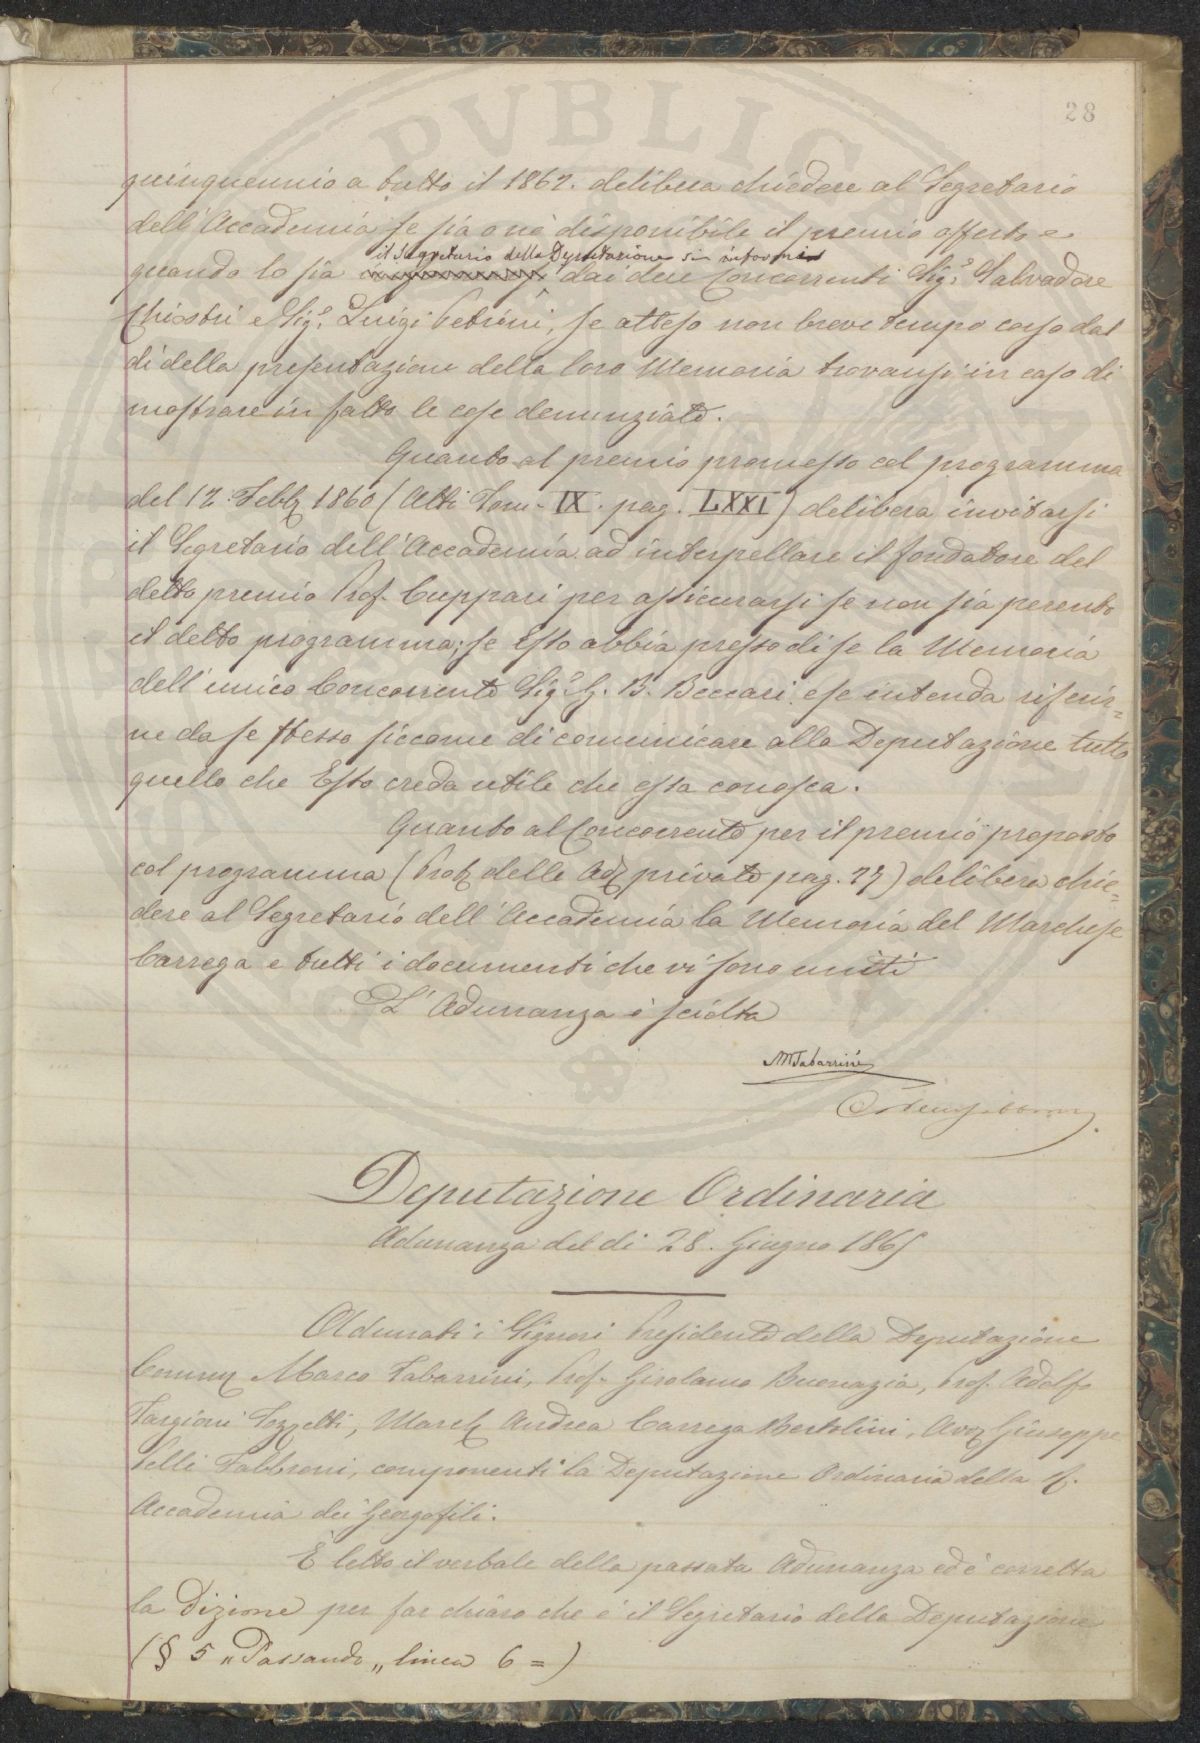 PVBLICA
28
quinquennio a tutto il 1862. delibera chiedere al Segretario
dell'Accademia se sia o no disponibile il premio offerto e
il Segretario della Deputazione s'informi
quando lo sia dai due Concorrenti Sig.i Salvadore
Chiostri e Sig. Luigi Petrini, se atteso non breve tempo corso dal
dì della presentazione della loro Memoria trovansi in caso di
mostrare in fatto le cose denunziate.
Quanto al premio promesso col programma
del 12 Febb. 1860 (Atti Tom. IX. pag. LXXI) delibera invitarsi
il Segretario dell'Accademia ad interpellare il fondatore del
detto premio Prof. Cuppari per assicurarsi se non sia perento
il detto programma; se Esso abbia presso di se la Memoria
dell'unico Concorrente Sig. G. B. Beccari e se intenda riferir=
ne da se stesso siccome di comunicare alla Deputazione tutto
quello che Esso creda utile che essa conosca.
Quanto al Concorrente per il premio proposto
col programma (Prot. delle Ad. private pag. 27) delibera chie=
dere al Segretario dell'Accademia la Memoria del Marchese
Carrega e tutti i documenti che vi sono uniti
L'Adunanza è sciolta
M Tabarrini
Deputazione Ordinaria
Adunanza del dì 28. Giugno 1865
Adunati i Signori Presidente della Deputazione
Comm. Marco Tabarrini, Prof. Girolamo Buonazia, Prof. Adolfo
Targioni Tozzetti, March. Andrea Carrega Bertolini, Avv. Giuseppe
Pelli Fabbroni, componenti la Deputazione Ordinaria della R.
Accademia dei Georgofili.
È letto il verbale della passata Adunanza ed è corretta
la Dizione per far chiaro che è il Segretario della Deputazione
(§ 5 „Passando„ linea 6 =)